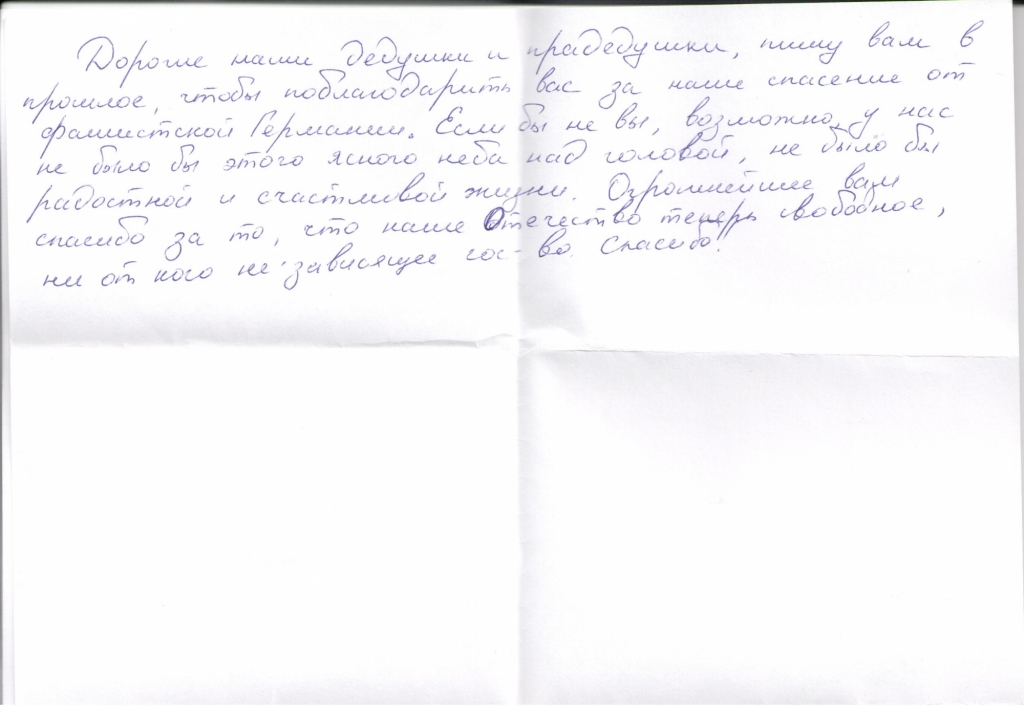 Дорогие наши дедушки и прадедушки, пишу вам в
прошлое, чтобы поблагодарить вас за наше спасение от
фашистской Германии. Если бы не вы, возможно, у нас
не было бы этого ясного неба над головой, не было бы
радостной и счастливой жизни. Огромнейшее вам
спасибо за то, что наше Отечество теперь свободное,
ни от кого не зависящее гос-во. Спасибо!